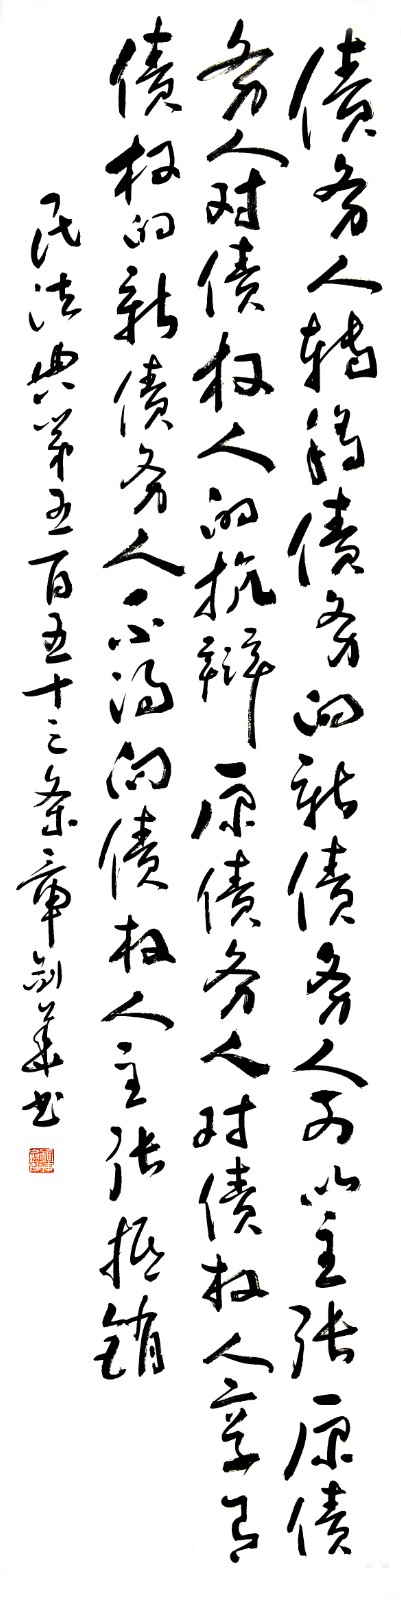 债务人转移债务的新债务人可以主张原债
务人对债权人的抗辩原债务人对债权人享有
债权的新债务人不得向债权人主张抵销
民法典第五百五十三条章剑华书